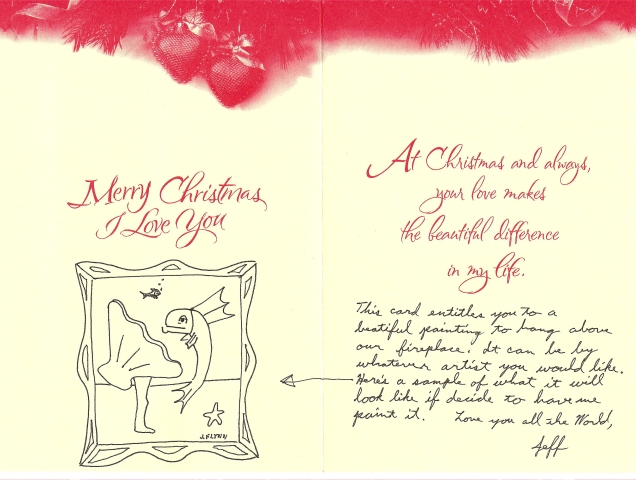 Merry Christmas
I Love You
J.FLYNN
At Christmas and always,
your love makes
the beautiful difference
in my life.
This card entitles you to a
beatiful painting to hang above
our fireplace. It can be by
whatever artist you would like.
Here's a sample of what it will
look like if decide to have me
paint it. Love you all the World,
Jeff